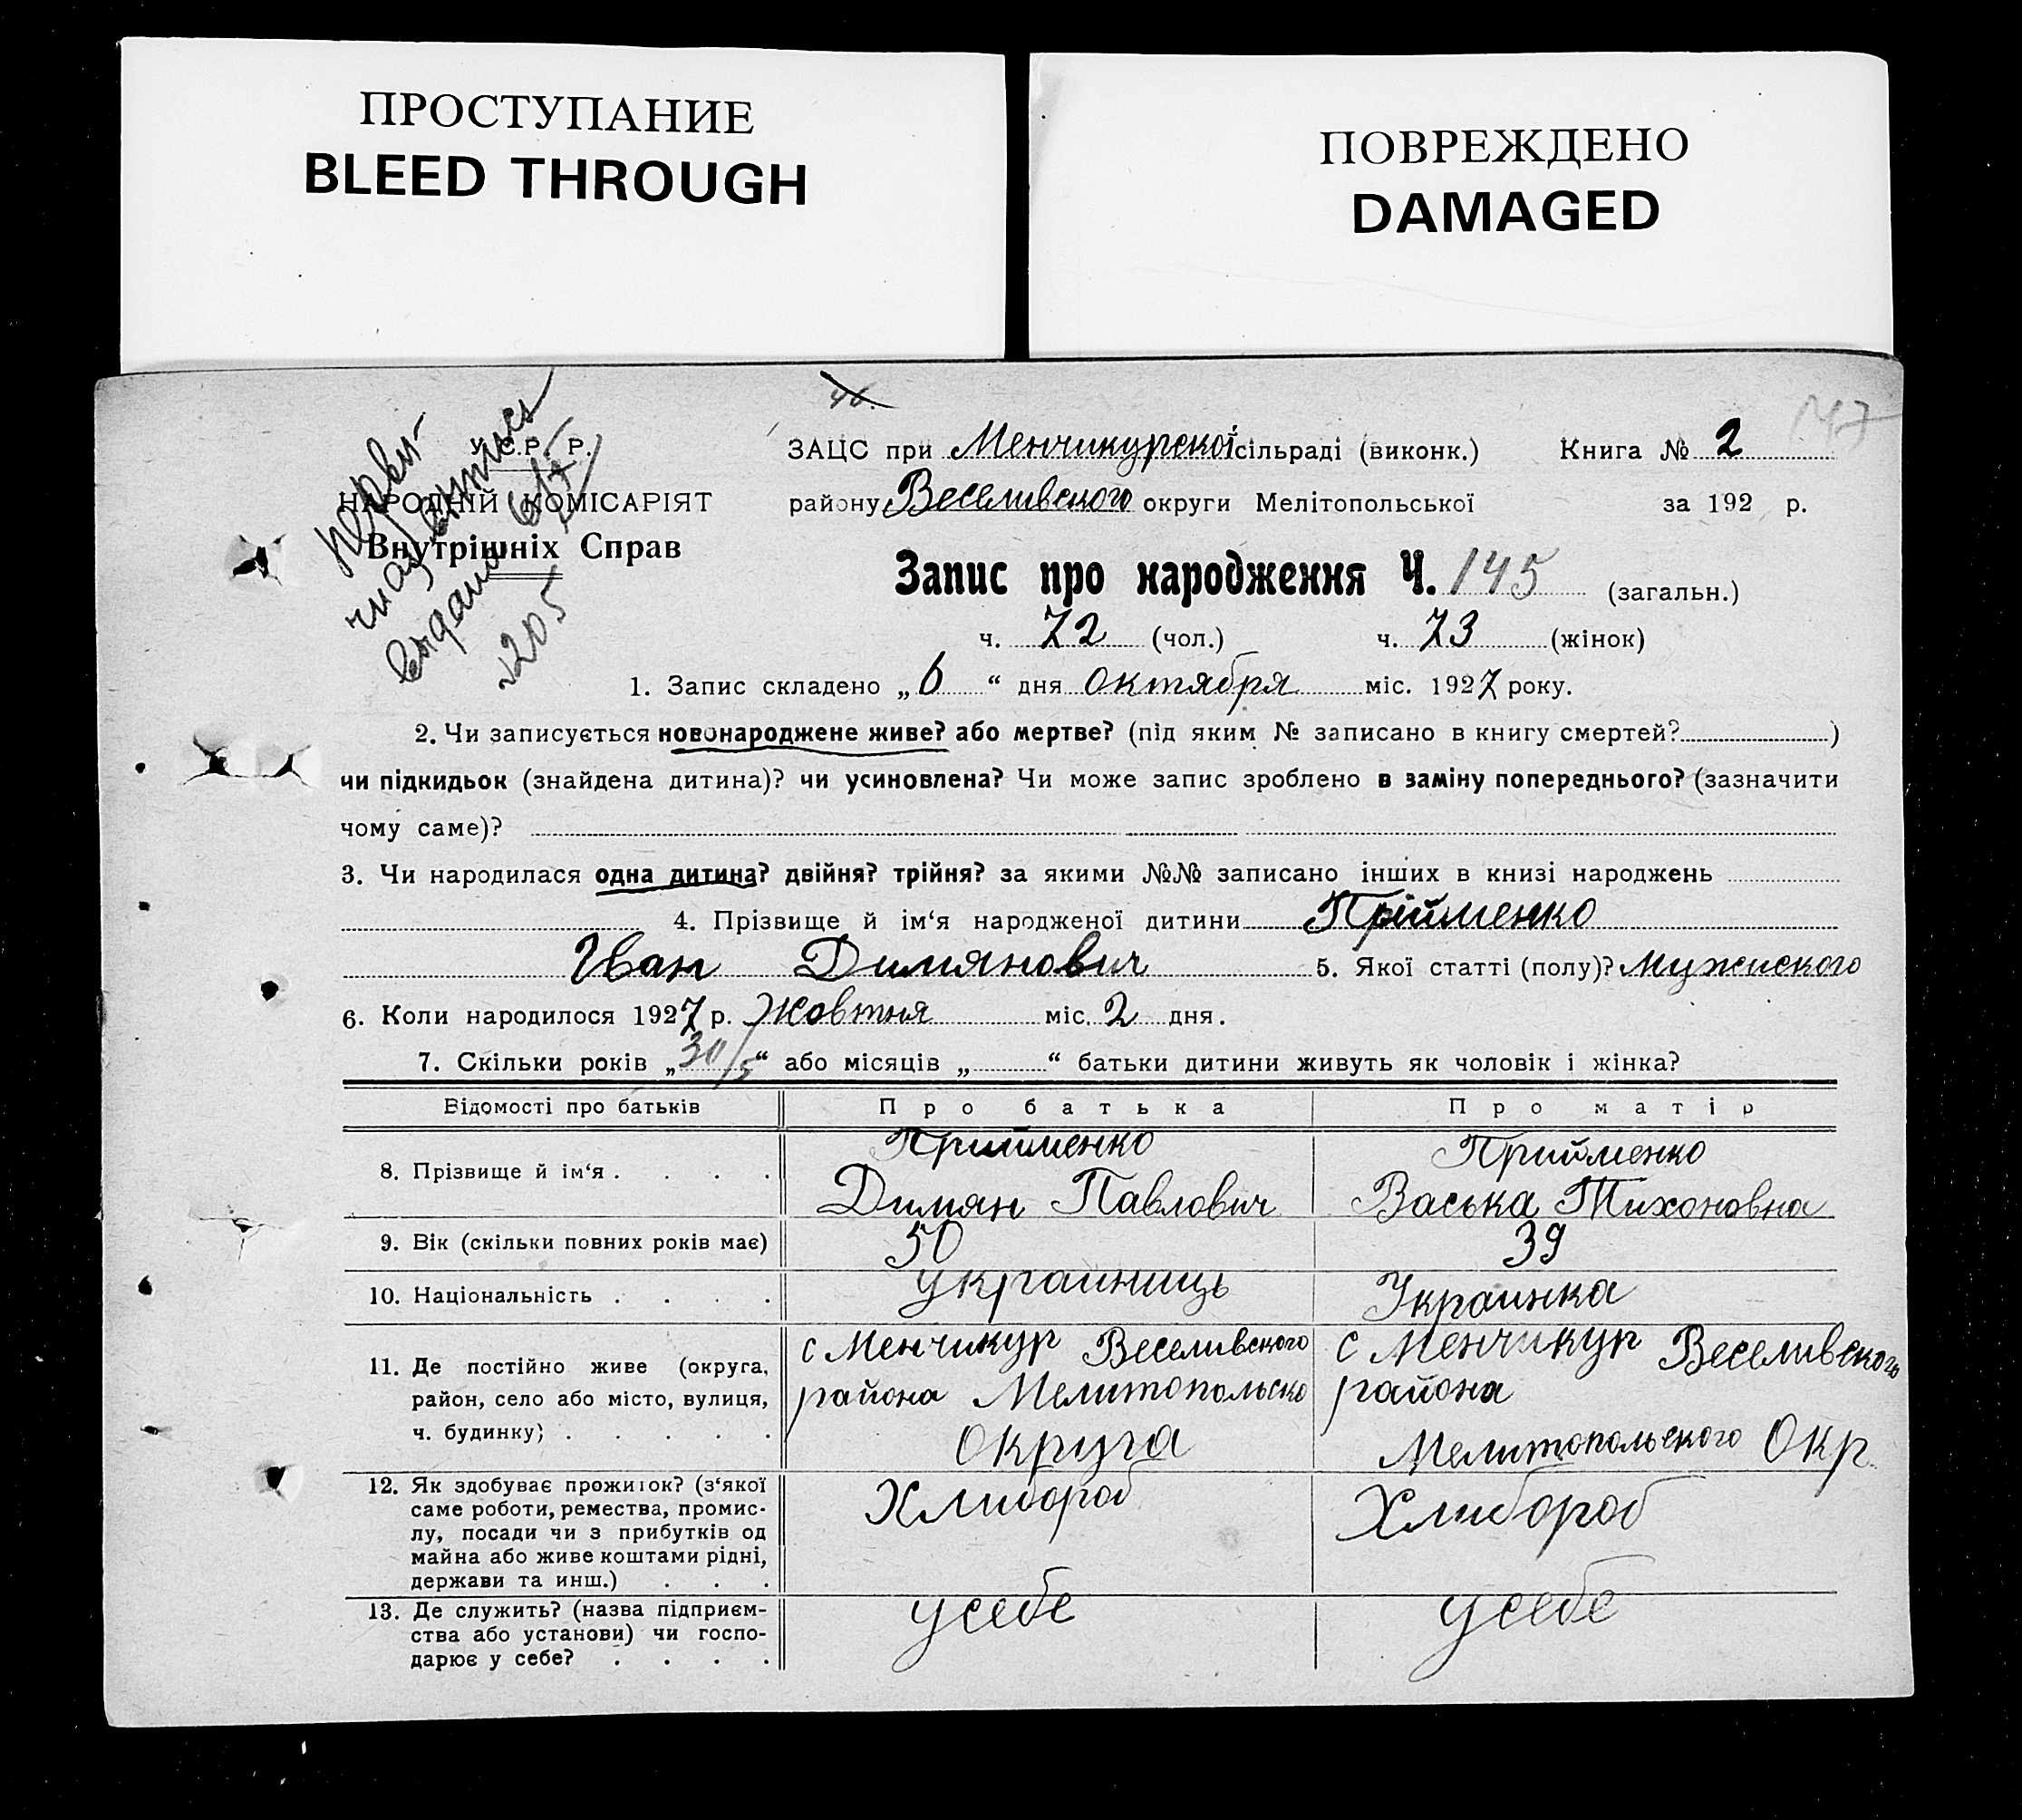 ПРОСТУПАНИЕ
BLEED THROUGH
ПОВРЕЖДЕНО
DAMAGED
46.
147
У.С.Р.Р.
НАРОДНІЙ КОМІСАРІЯТ
Внутрішніх Справ
выдано
ЗАЦС при Менчикурскоі сільраді (виконк.) Книга № 2
району Веселивского округи Мелітопольської за 192 р.
Запис про народження Ч. 145 (загальн.)
ч. 72 (чол.) ч. 73 (жінок)
1. Запис складено „6“ дня октября міс. 1927 року.
2. Чи записується новонароджене живе? або мертве? (під яким № записано в книгу смертей? )
чи підкидьок (знайдена дитина)? чи усиновлена? Чи може запис зроблено в заміну попереднього? (зазначити
чому саме)?
3. Чи народилася одна дитина? двійня? трійня? за якими №№ записано інших в книзі народжень
4. Прізвище й ім‘я народженої дитини Прійменко
Іван Димянович 5. Якої статті (полу)? Мужиского
6. Коли народилося 1927 р. Жовтня міс. 2 дня.
7. Скільки років „30/5“ або місяців „ “ батьки дитини живуть як чоловік і жінка?
Відомості про батьків Про батька Про матір
8. Прізвище й ім‘я . . . . Прийменко Димян Павлович Прийменко Васька Тихоновна
9. Вік (скільки повних років має) 50 39
10. Національність . . . . Украиниць Украинка
11. Де постійно живе (округа, с Менчикур Веселивского с Менчикур Веселивского
район, село або місто, вулиця, района Мелитопольско района
ч. будинку) . . . . . Округа Мелитопольского Окр.
12. Як здобуває прожиток? (з‘якої Хлибороб Хлибороб
саме роботи, ремества, промис-
лу, посади чи з прибутків од
майна або живе коштами рідні,
держави та инш.) . . .
13. Де служить? (назва підприєм- усебе усебе
ства або установи) чи госпо-
дарює у себе? . . . .